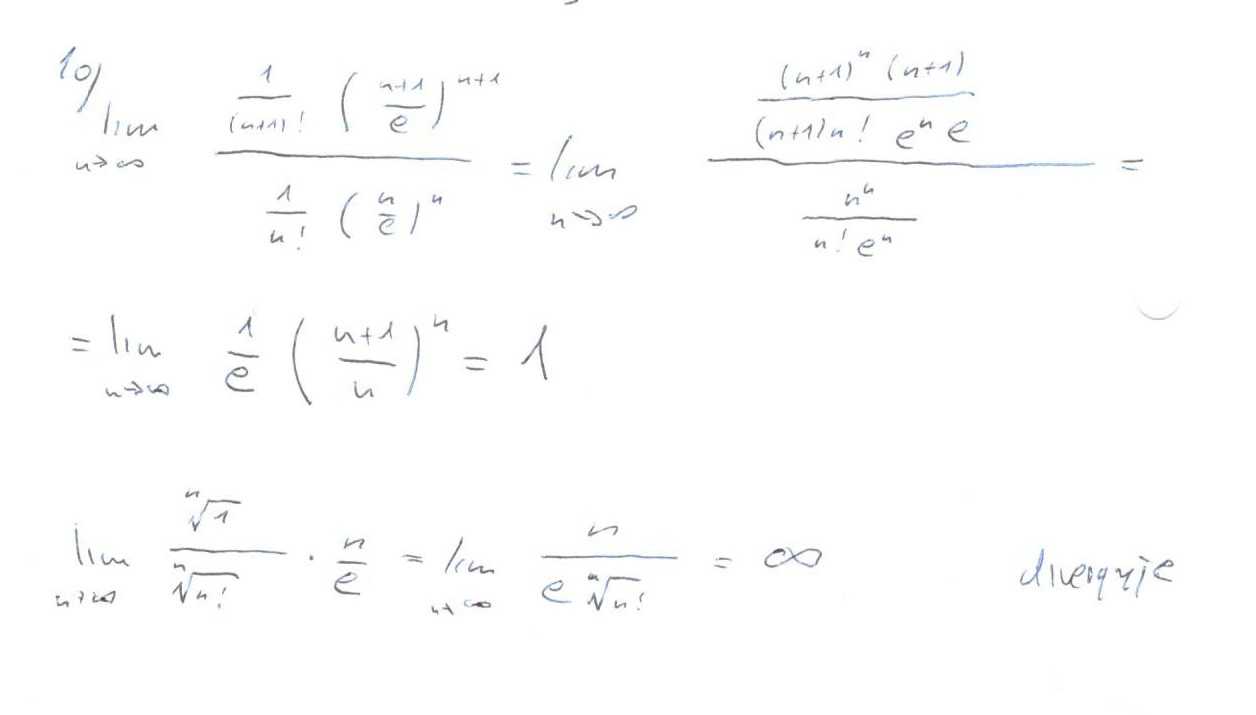 10) lim_{n→∞} \frac{\frac{1}{(n+1)!} \left(\frac{n+1}{e}\right)^{n+1}}{\frac{1}{n!} \left(\frac{n}{e}\right)^n} = lim_{n→∞} \frac{\frac{(n+1)^n (n+1)}{(n+1)n! e^n e}}{\frac{n^n}{n! e^n}} =
= lim_{n→∞} \frac{1}{e} \left(\frac{n+1}{n}\right)^n = 1
lim_{n→∞} \frac{\sqrt[n]{1}}{\sqrt[n]{n!}} · \frac{n}{e} = lim_{n→∞} \frac{n}{e \sqrt[n]{n!}} = ∞ diverguje